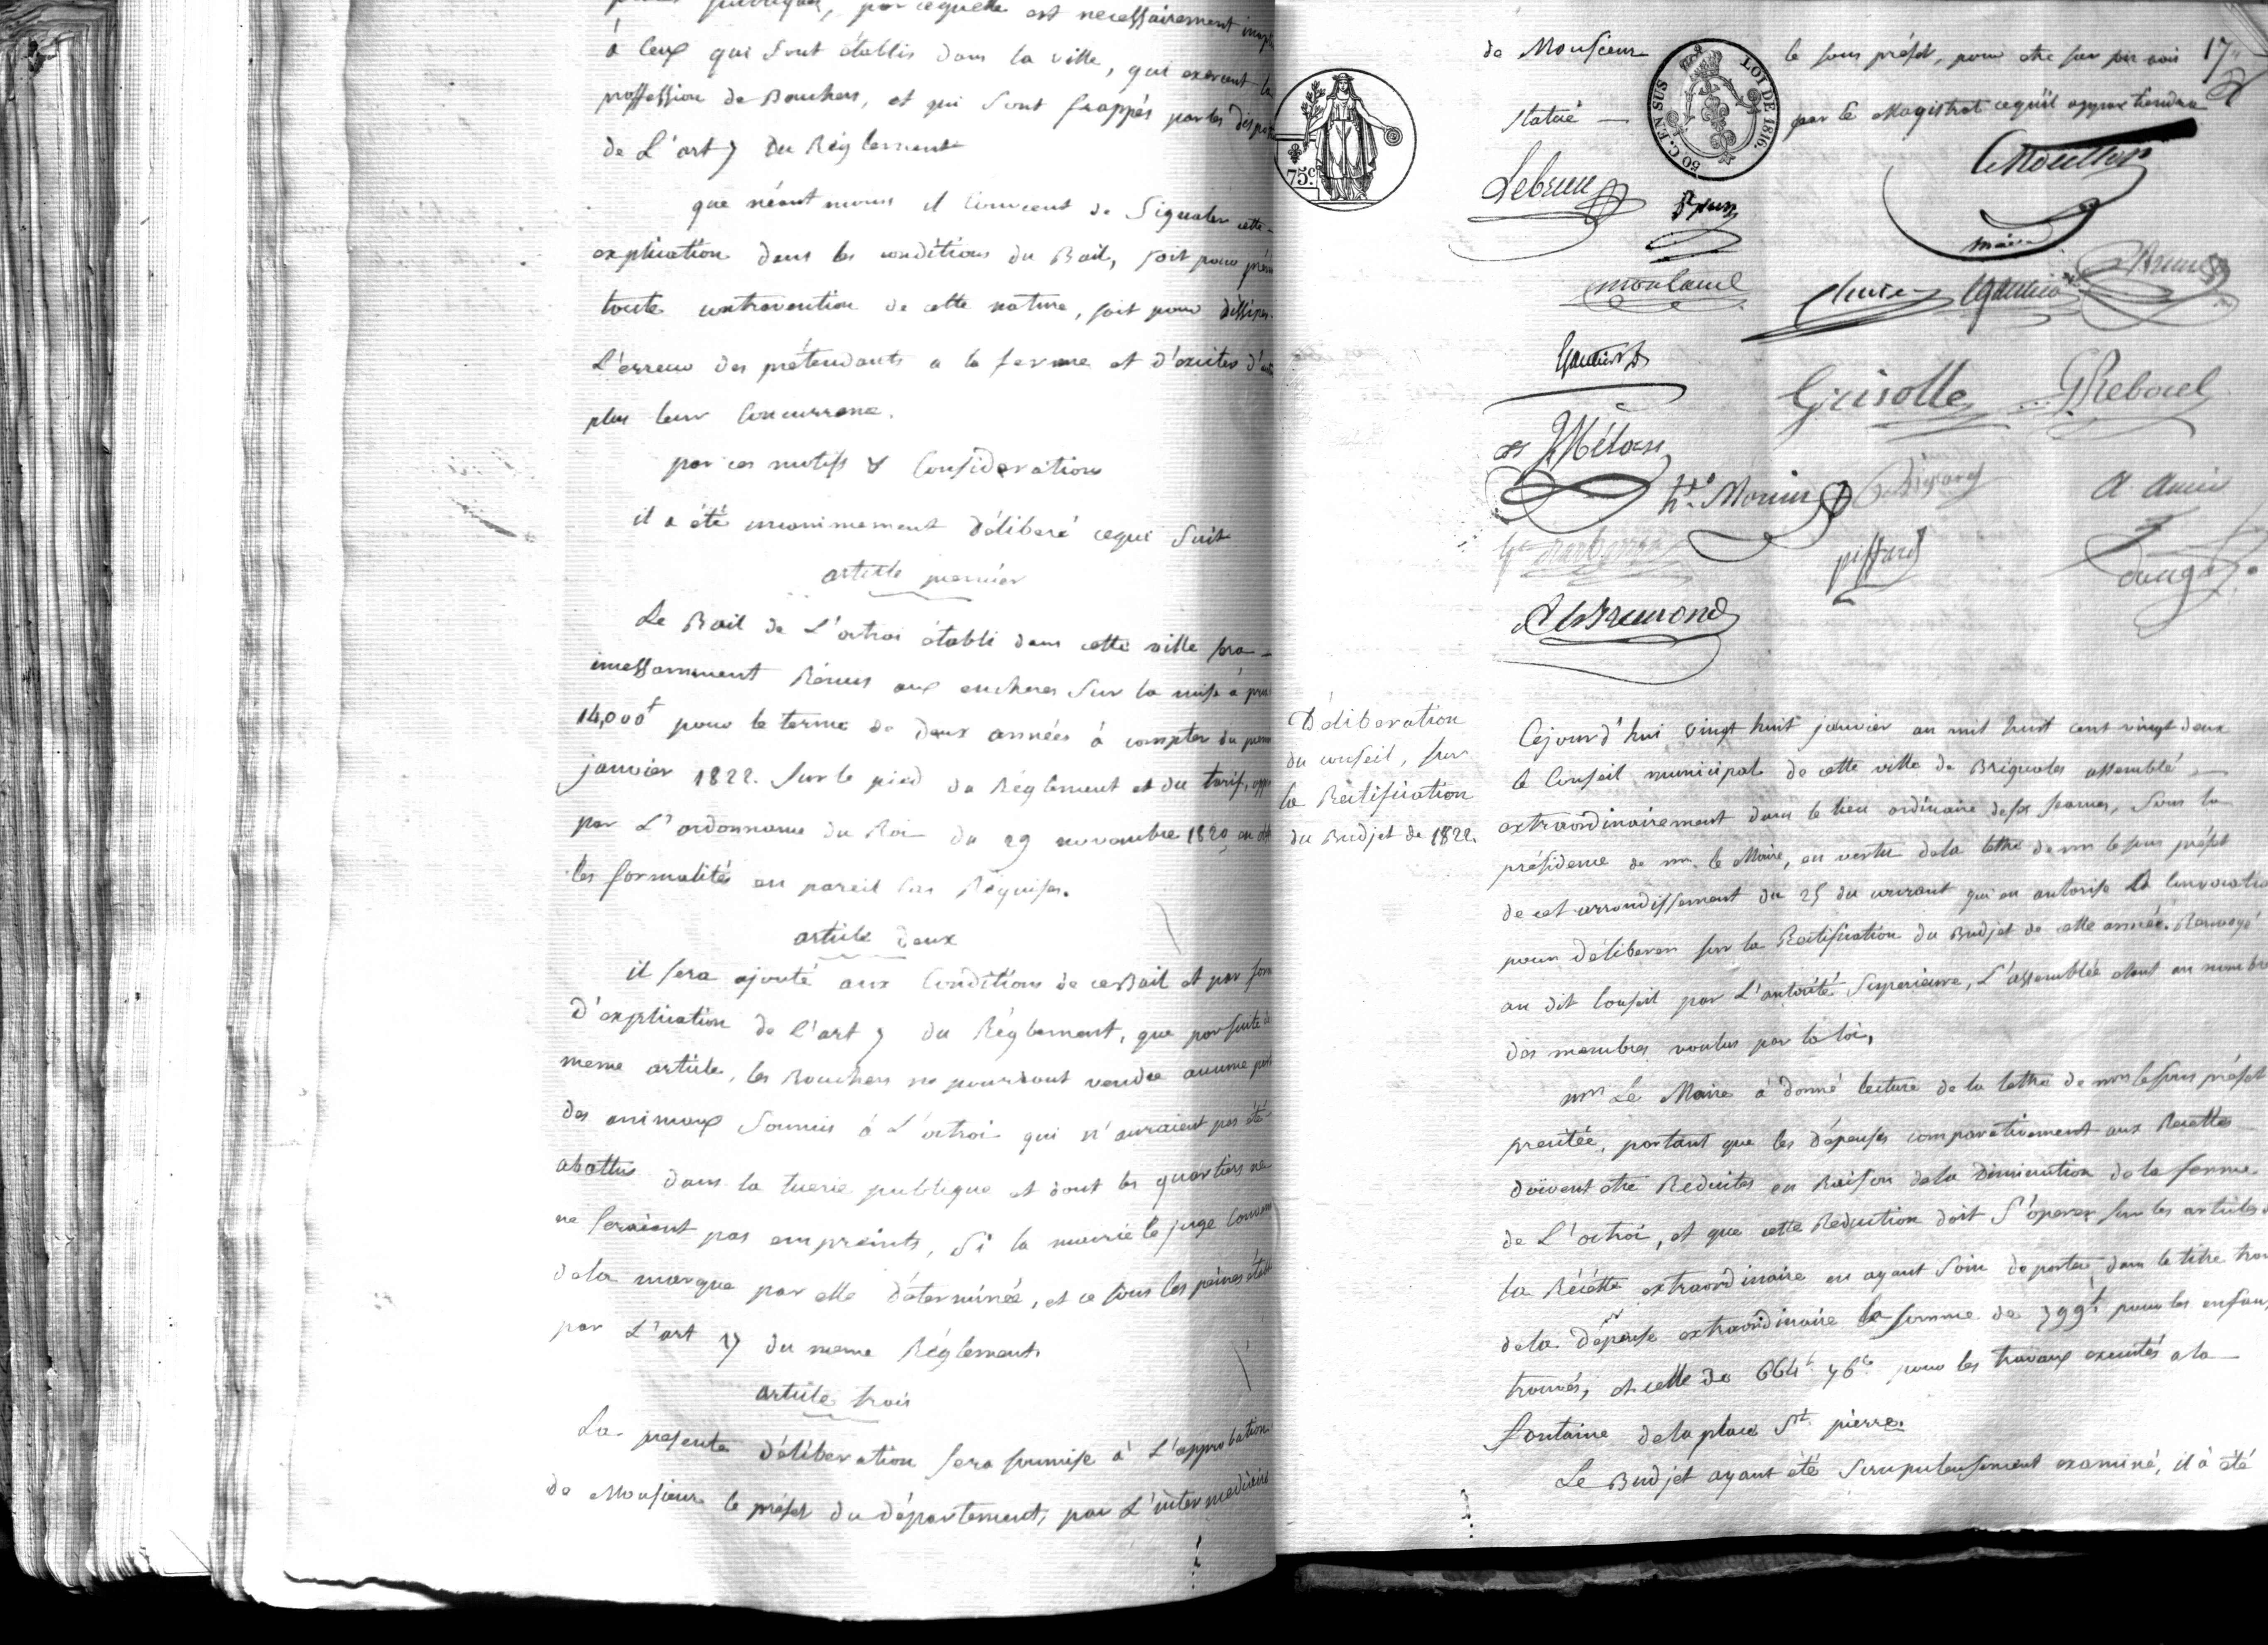 publiques, par laquelle est necessairement
à ceux qui sont établis dans la ville, qui exercent la
proffession de Bouchers, et qui sont frappés par les
de L'art 7 du Réglement
que néantmoins il convient de signaler cette
explication dans les conditions du Bail, soit pour
toute contravention de cette nature, soit pour dissiper
L'erreur des prétendants a la ferme et d'exciter
plus leur concurrence.
par ces motifs & considerations
il a été unanimement délibéré cequi suit
article premier
Le Bail de L'octroi établi dans cette ville sera
incessamment Rémis aux encheres sur la mise à prix
14,000 pour le terme de deux années à compter du
janvier 1822. sur le pied du Réglement et du tarif,
par L'ordonnance du Roi du 29 novembre 1820,
les formalités en pareil cas Réquises.
article deux
il sera ajouté aux conditions de ce Bail et par
D'explication de L'art 7 du Réglement, que par suite
meme article, les Bouchers ne pourront vendre aucune
des animaux soumis à L'octroi qui n'auraient pas été
abattus dans la tuerie publique et dont les quartiers ne
ne seraient pas empreints, si la mairie le juge
dela marque par elle déterminée, et ce sous les peines
par L'art 17 du meme Réglement.
article trois
La presente déliberation sera soumise à L'approbation
de Monsieur le préfet du département, par L'intermediaire
17
de Monsieur le sous préfet, pour etre
statué par le Magistrat cequ'il appartiendra
50 C. EN SUS
LOI DE 1816.
75c
Lebrun
maire
Gautier
Grisolle
G Reboul
Morin
A Amic
piffard
Déliberation
du conseil, sur
la Rectification
du Budjet de 1822.
Cejourd'hui vingt huit janvier an mil huit cent vingt deux
le Conseil municipal de cette ville de Brignoles assemblé
extraordinairement dans le lieu ordinaire deses seances, sous la
présidence de mr. le Maire, en vertu dela lettre de mr le sous préfet
de cet arrondissement du 25 du courant qui en autorise la convocation
pour déliberer sur la Rectification du Budjet de cette année. Renvoyé
au dit Conseil par L'autorité superieure, L'assemblée etant en nombre
des membres voulus par la loi,
mr Le Maire à donné lecture de la lettre de mr le sous préfet
précitée, portant que les dépenses comparativement aux Recettes
doivent etre Reduites en Raison dela diminution de la ferme
de L'octroi, et que cette Reduction doit s'operer sur les articles
la Récette extraordinaire en ayant soin de porter dans le titre
dela dépense extraordinaire la somme de 799 pour les enfans
trouvés, et celle de 664 76 pour les travaux executés a la
fontaine dela place St. pierre.
Le Budjet ayant été scrupuleusement examiné, il à été